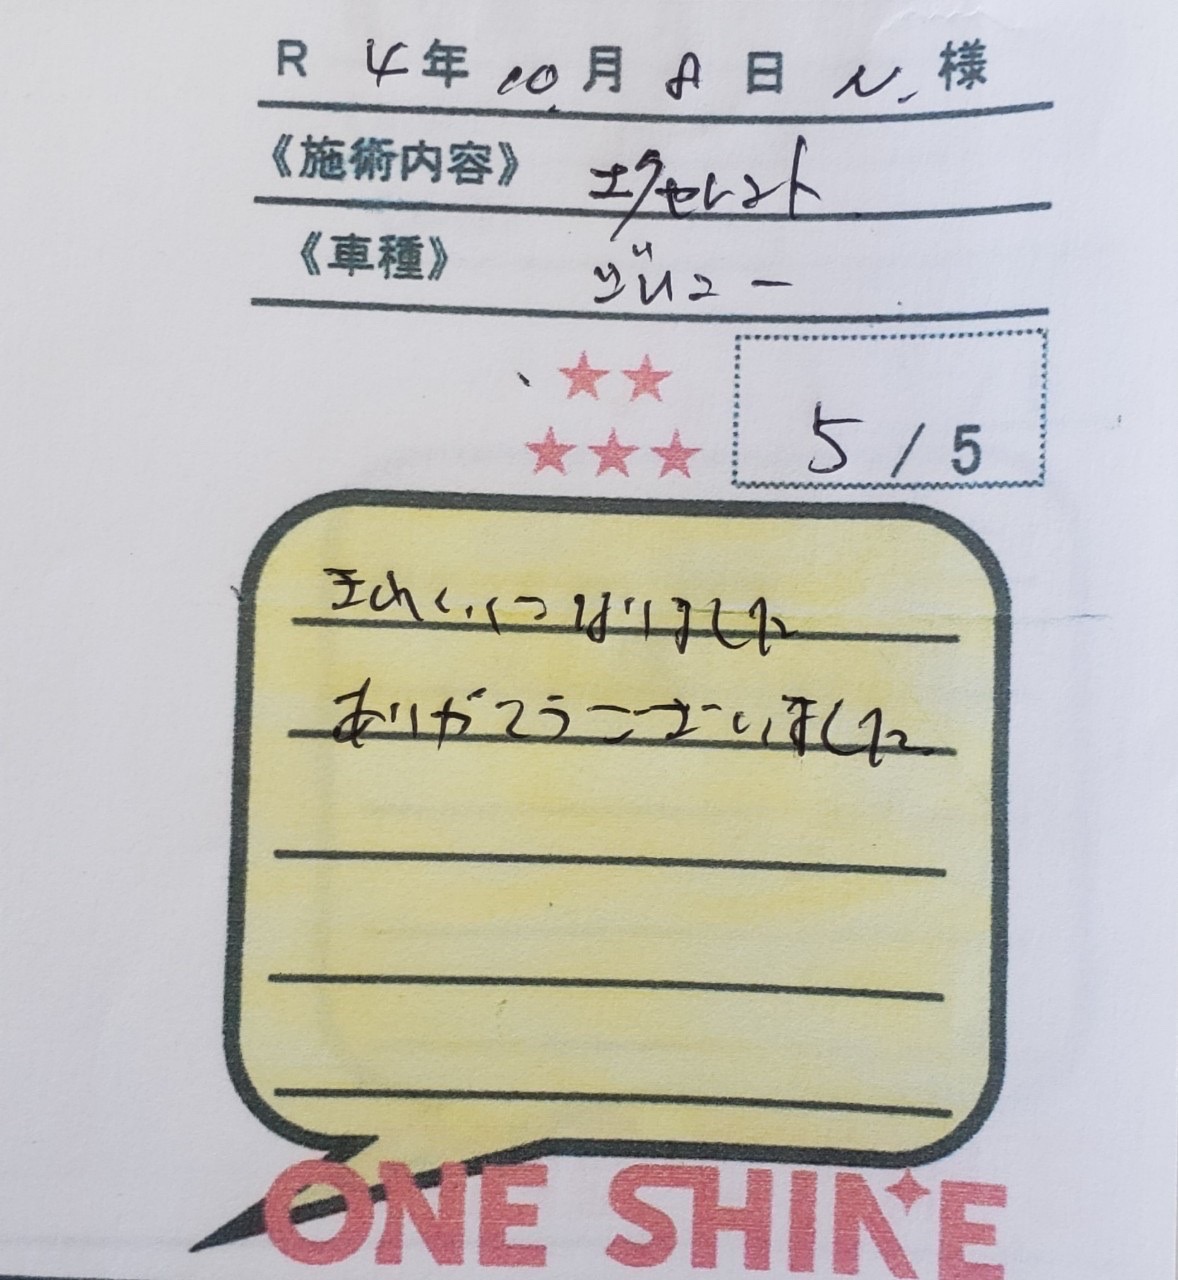 R 4年 10月 8日 N. 様
《施術内容》 エクセレント
《車種》
5 / 5
きれいになりました
ありがとうございました
ONE SHINE